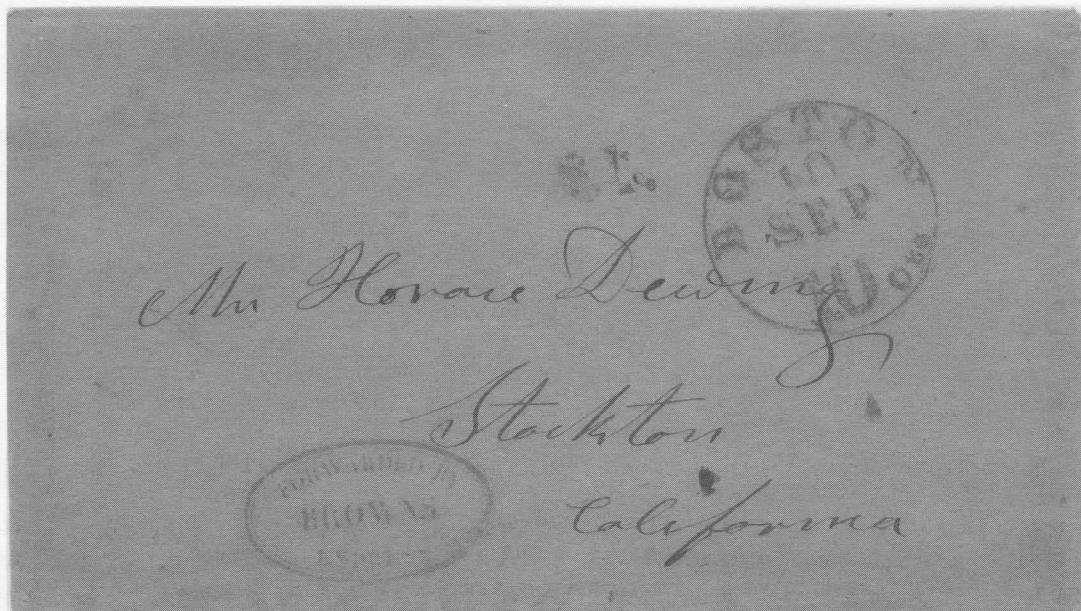 BOSTON
10
SEP
10 cts
Mr Horace Dewing
Stockton
California
FORWARDED BY
BROWN'S
EXPRESS